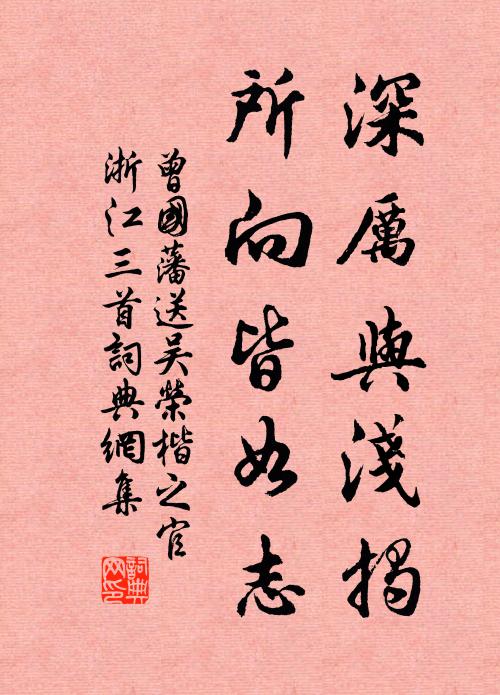 深厲與淺揭
所向皆如志
曾國藩送吴榮楷之官
浙江三首詞典網集
詞典网印